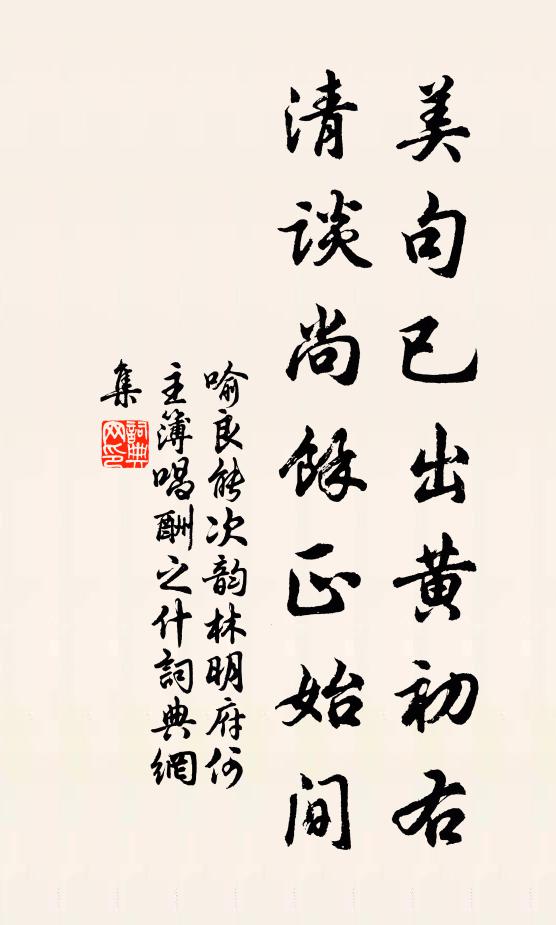 美句已出黄初右
清談尚餘正始间
喻良能次韵林明府何
主簿唱酬之什詞典網
集
詞典
网印